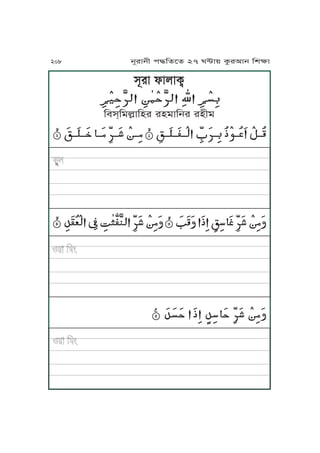 ২০৮ নূরানী পদ্ধতিতে ২৭ ঘণ্টায় কুরআন শিক্ষা
সূরা ফালাক্ব
بِسْمِ اللهِ الرَّحْمٰنِ الرَّحِيْمِ
বিস্‌মিল্লাহির রহমানির রহীম
قُلْ اَعُوْذُ بِرَبِّ الْفَلَقِ ۝ مِنْ شَرِّ مَا خَلَقَ ۝
কুল
وَمِنْ شَرِّ غَاسِقٍ اِذَا وَقَبَ ۝ وَمِنْ شَرِّ النَّفّٰثٰتِ فِى الْعُقَدِ ۝
ওয়া মিং
وَمِنْ شَرِّ حَاسِدٍ اِذَا حَسَدَ ۝
ওয়া মিং